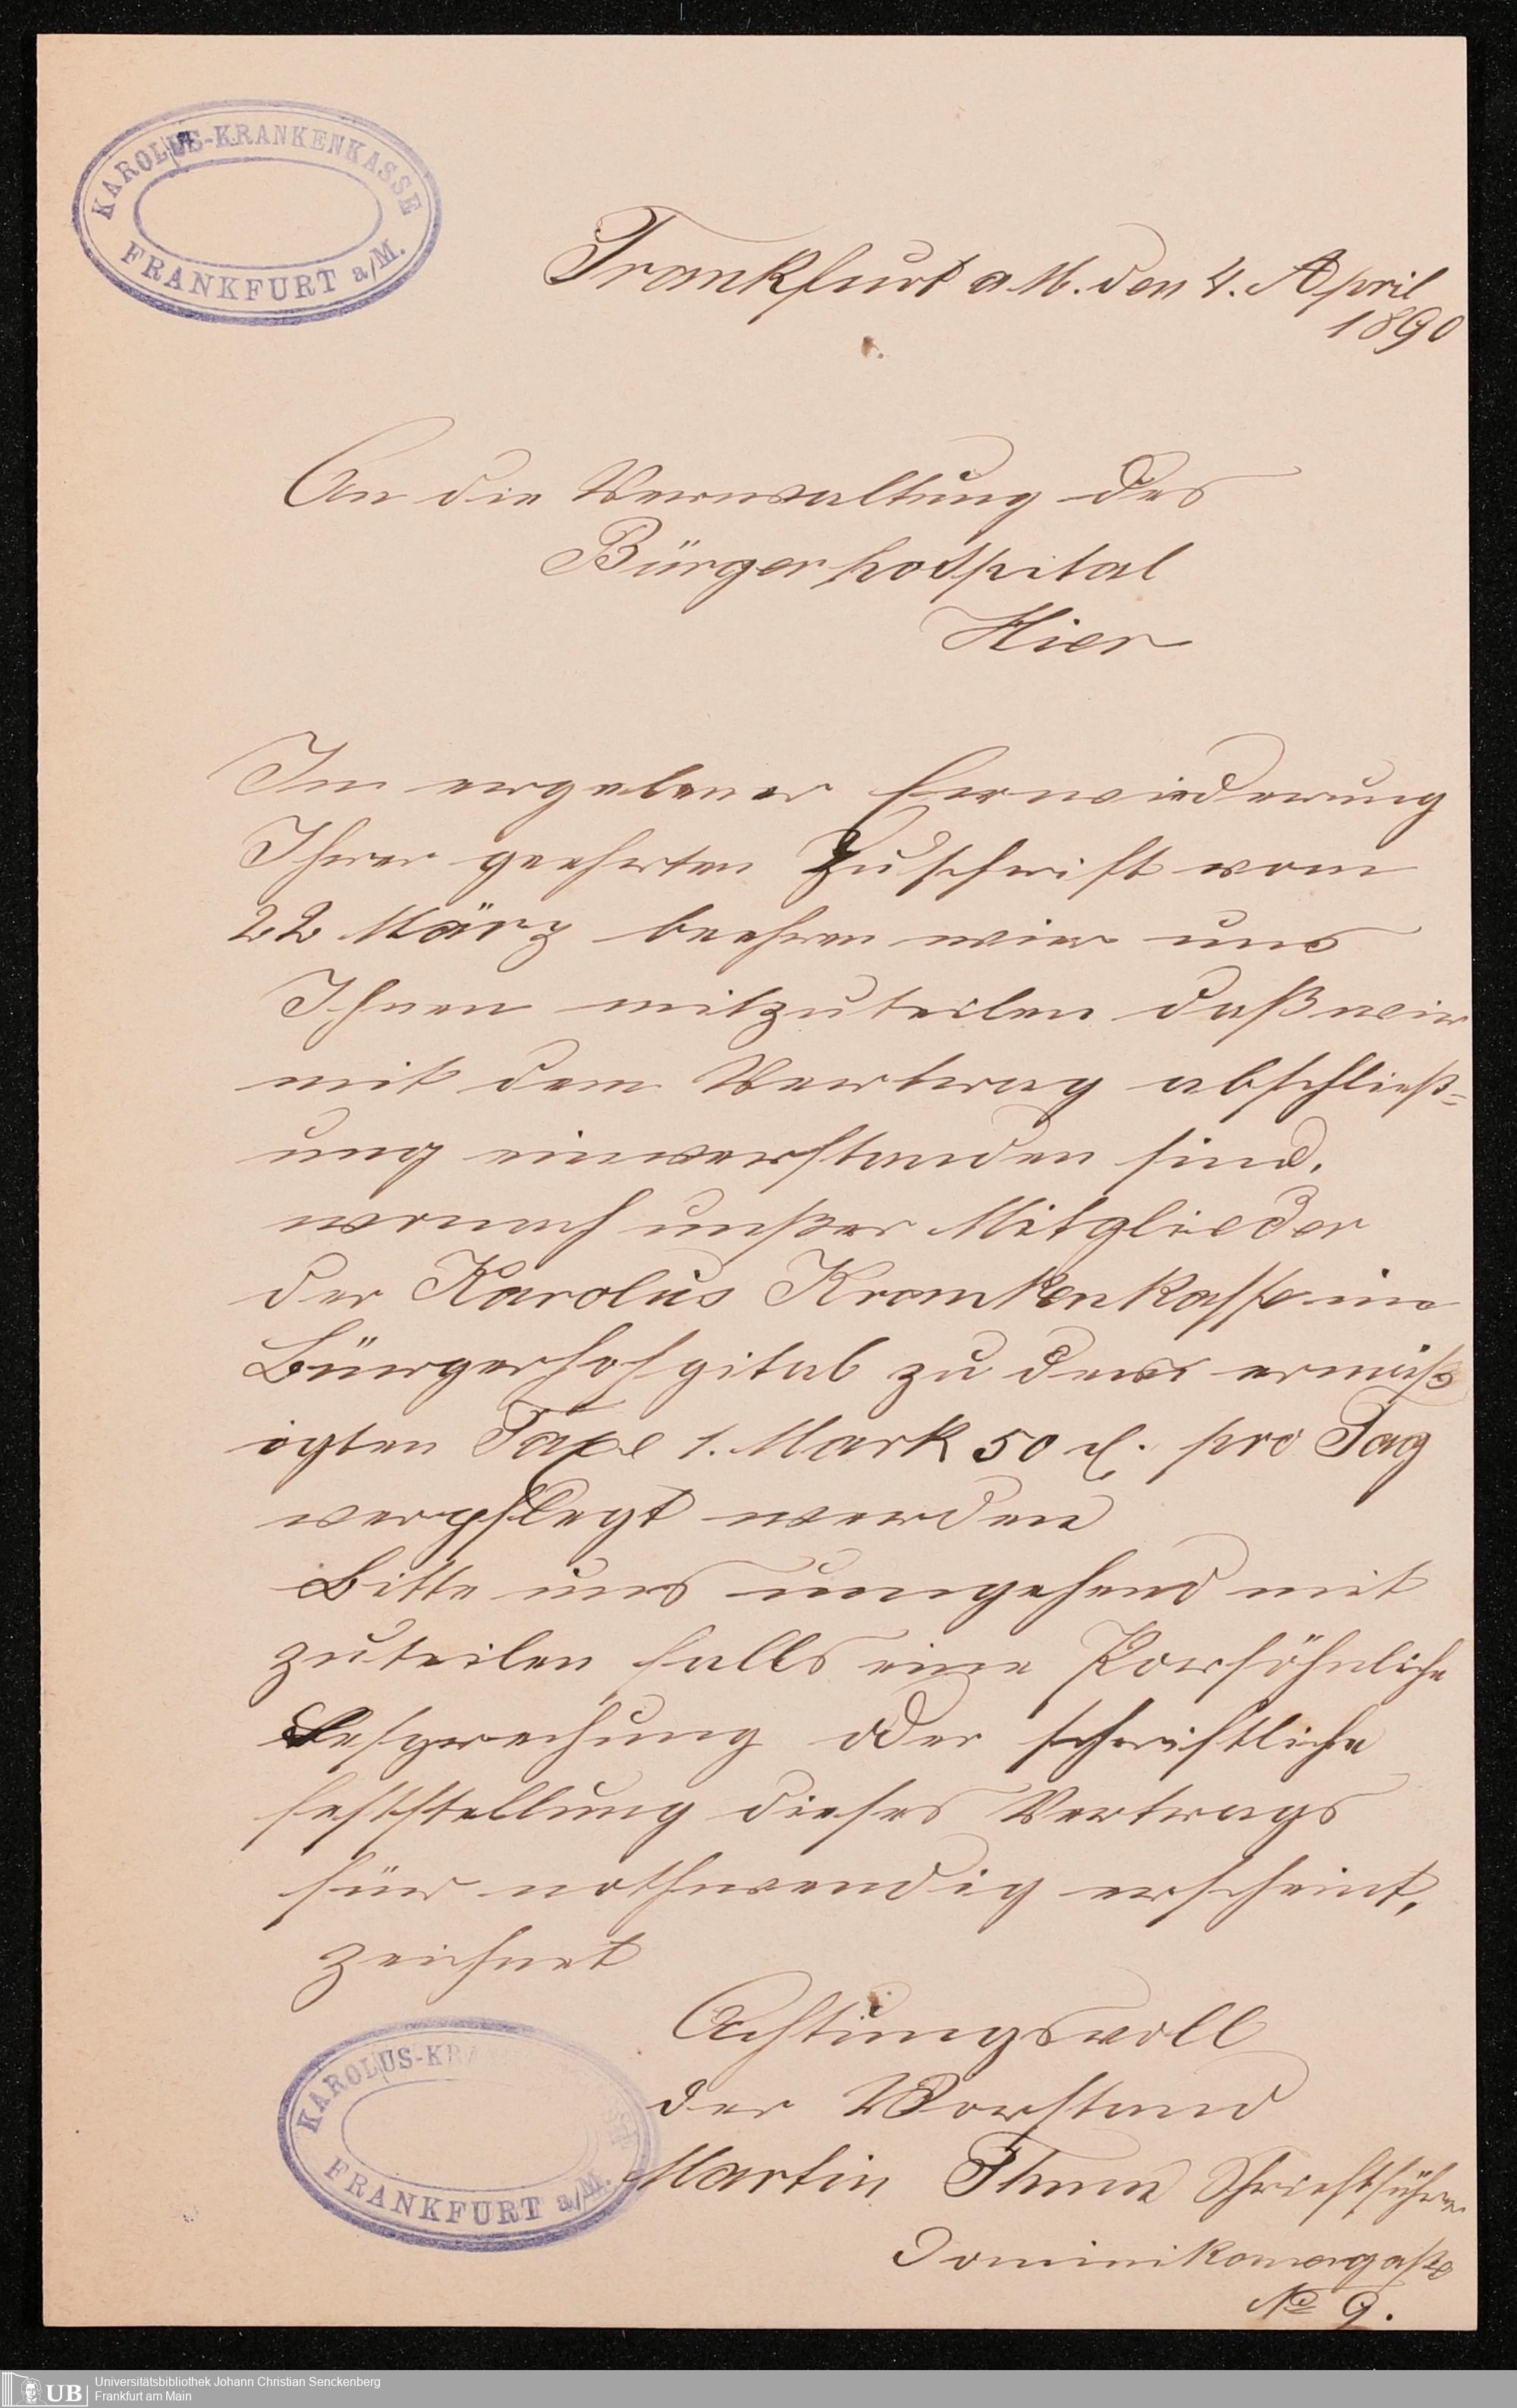 KAROLUS-KRANKENKASSE
FRANKFURT a/M.
Frankfurt a M. den 4. April
1890
An die Verwaltung des
Bürgerhospital
Hier
In ergebener Erwiederung
Ihrer geehrten Zuschrift vom
22 März beehren wir uns
Ihnen mitzuteilen daß wir
mit dem Vertrag abschließ=
ung einverstanden sind.
wonach unßer Mitglieder
der Karolus Krankenkasse im
Bürgerhospital zu dem ermäß
igten Taxe 1. Mark 50 d. pro Tag
verpflegt werden
Bitte uns umgehend mit
zuteilen falls eine Persöhnliche
Besprechung oder schriftliche
feststellung dieses Vertrags
für nothwendig erscheint,
zeichnet
Achtungsvoll
der Vorstand
Martin Schriftführer
Dominikanergasse
No 9.
KAROLUS-KRA
FRANKFURT a/M.
UB
Universitätsbibliothek Johann Christian Senckenberg
Frankfurt am Main